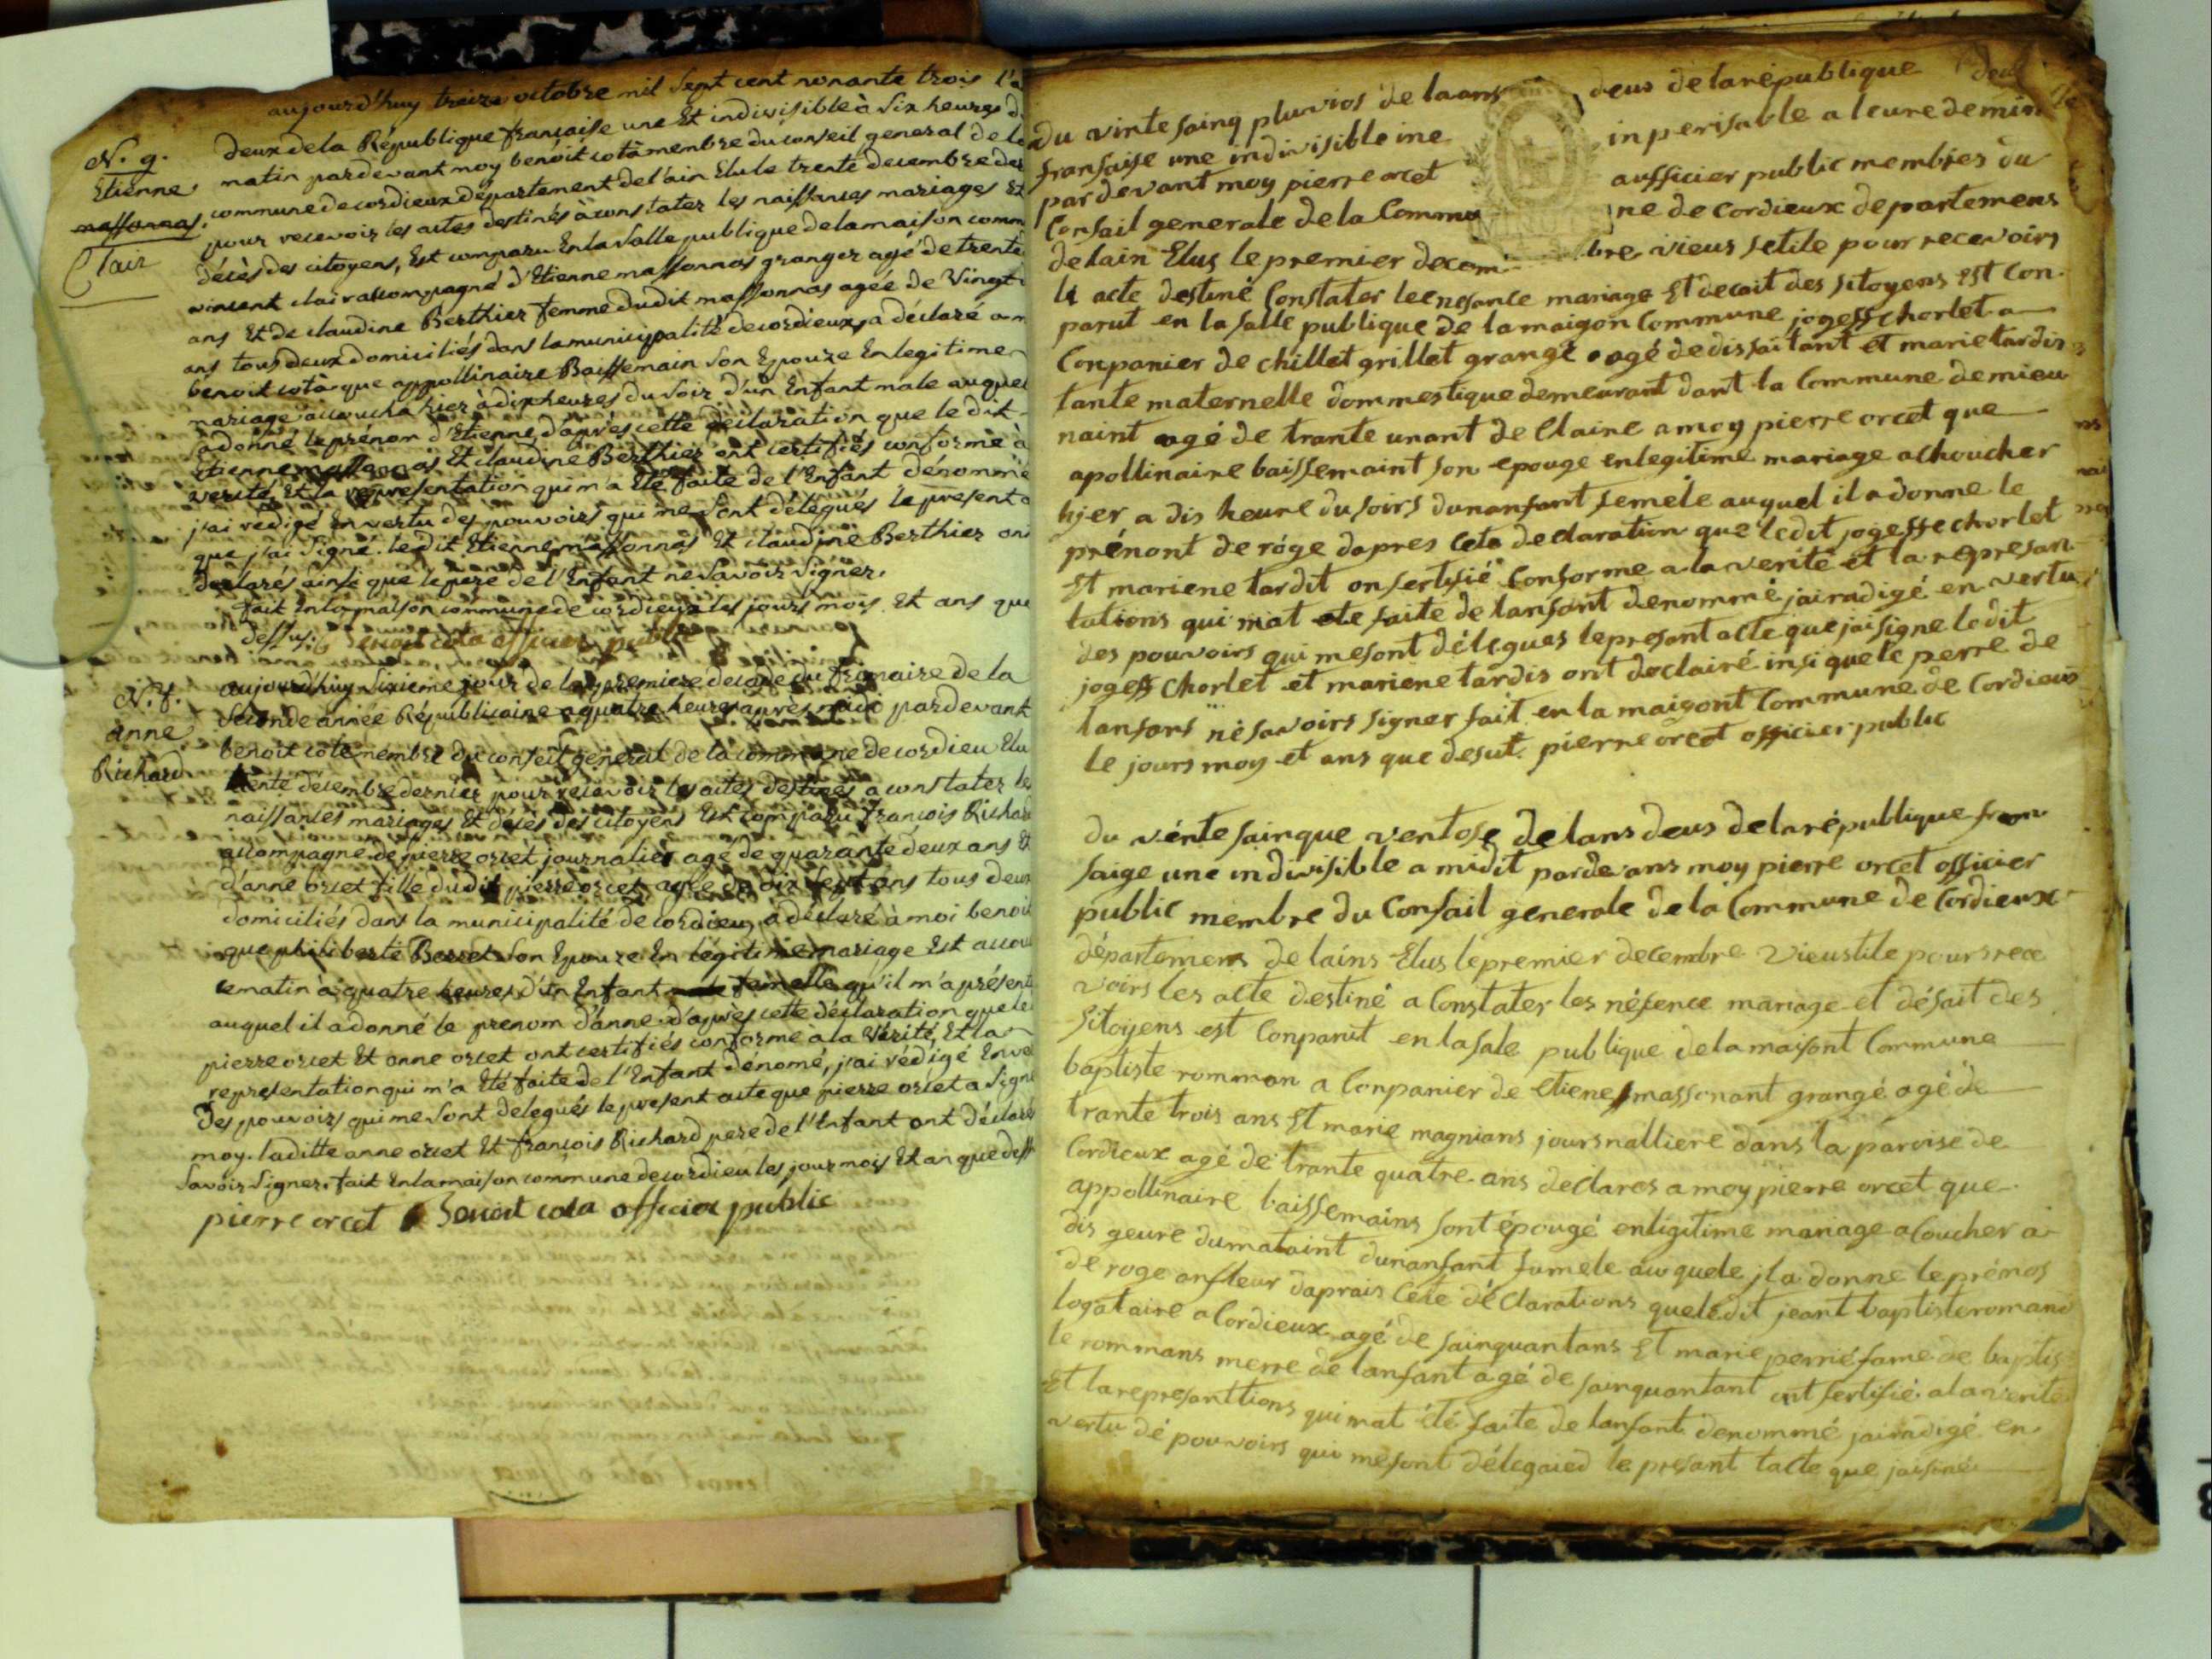 aujourd'huy treize octobre mil Sept cent nonante trois l'a
N. 9. deux de la République française une Et indivisible à Six heures d
Etienne matin pardevant moy benoit cota membre du conseil general de la
massonnas. commune de cordieux département de l'ain Elu le trente decembre der
Clair pour recevoir les actes destinés à constater les naissances mariages Et
décès des citoyens, Est comparu En la Salle publique de la maison comm
vincent clair accompagné d'Etienne massonnas granger agé de trente
ans Et de claudine Berthier femme dudit massonnas agée de Vingt
ans tous deux domiciliés dans la municipalité de cordieux, a déclaré a m
benoit cota que appollinaire Baissemain Son Epouze En legitime
mariage accoucha hier à dix heures du Soir d'un Enfant male auquel
a donné le prénom d'Etienne, d'après cette déclaration que le dit
Etienne massonnas Et claudine Berthier ont certifiés conforme à
verité, Et la representation qui m'a Eté faite de l'Enfant dénommé
j'ai rédigé En vertu des pouvoirs qui me Sont délégués le present a
que j'ai Signé. le dit Etienne massonnas Et claudine Berthier ont
declarés ainsi que le pere de l'Enfant ne Savoir Signer.
fait En la maison commune de cordieux les jours mois Et ans que
dessus. benoit cota officier public
N. f. aujourd'huy Sixieme jour de la premiere decade du frimaire de la
anne Seconde année Républicaine a quatre heures après midi pardevant
Richard benoit cota membre du conseil general de la commune de cordieu Elu
trente décembre dernier pour recevoir les actes destinés a constater les
naissances mariages Et décès des citoyens Est comparu françois Richard
accompagné de pierre orcet journalier agé de quarante deux ans Et
d'anne orcet fille dudit pierre orcet agée de dix Sept ans tous deux
domiciliés dans la municipalité de cordieu, a déclaré à moi benoit
que philiberte Berret Son Epouze En légitime mariage Est accou
ce matin à quatre heures d'un Enfant femelle qu'il m'a présenté
auquel il a donné le prenom d'anne. d'après cette déclaration que le
pierre orcet Et anne orcet ont certifiés conforme a la Vérité, Et la
representation qui m'a Eté faite de l'Enfant dénomé, j'ai rédigé En ve
des pouvoirs qui me Sont delegués le present acte que pierre orcet a Signé
moy. laditte anne orcet Et françois Richard pere de l'Enfant ont déclaré
Savoir Signer. fait En la maison commune de cordieu les jour mois Et an que dess
pierre orcet Benoit cota officier public
du vinte sainq pluvios de la ans deus de la république
fransaise une indivisible ine inperisable a leure de mi
par devant moy pierre orcet aufficier public membres du
Consail generale de la Commu ne de Cordieux departemens
de lain Elus le premier decem bre vieus setile pour recevoirs
le acte destiné Constater lee nesance mariage Et decait des sitoyens est Con
parut en la salle publique de la maison Commune jogesse chorlet a
Conpanier de chillet grillet grangé agé de dissait ant et marie tardis
tante maternelle dommestique demeurant dant la Commune de mieu
naint agé de trante un ant de Claire a moy pierre orcet que
apollinaire baissemaint son epouge en legitime mariage achoucher
hjer a dis heure du soirs dun anfant femele auquel il a donne le
prénont de róge dapres cete declaration que ledit jogesse chorlet
Et mariene tardit on sertifié Conforme a la verité et la represan
tations qui mat ete faite de lanfant denommé jai radigé en vertu
des pouvoirs qui mesont délegues le presant acte que jai signe ledit
jogess chorlet et mariene tardis ont declairé insi que le perre de
lanfans né savoirs signer fait en la maisont Commune de Cordieus
le jours moy et ans que desut. pierre orcet officier public
du vénte sainque ventose de lans deus de la république fran
saige une indivisible a midit pardevans moy pierre orcet officier
public membre du Consail generale de la Commune de Cordieux
départemens de lains Elus le premier decembre vieustile pours rece
voirs les acte destiné a Constater les nésence mariage et désait des
sitoyens est Conparut en la sale publique de la maisont Commune
baptisteromman a Conpanier de Etiene massonant grangé agé de
trante trois ans Et marie magnians joursnalliere dans la paroise de
Cordieux agé de trante quatre ans declares a moy pierre orcet que
appollinaire baissemains sont épougé en ligitime mariage a Coucher a
dis geure du mataint dun anfant fumele auquele jl a donne le prénos
de roge anfleur daprais Cete déClarations que ledit jeant baptiste romand
logataire a Cordieux agé de sainquant ans Et marie perrié fame de baptis
te rommans merre de lanfant agé de sainquantant ont sertifié a la verite
Et la represanttions qui mat été faite de lanfant denommé jai radigé en
vertu dé pouvoirs qui mesont délegaied le presant tacte que jai siné